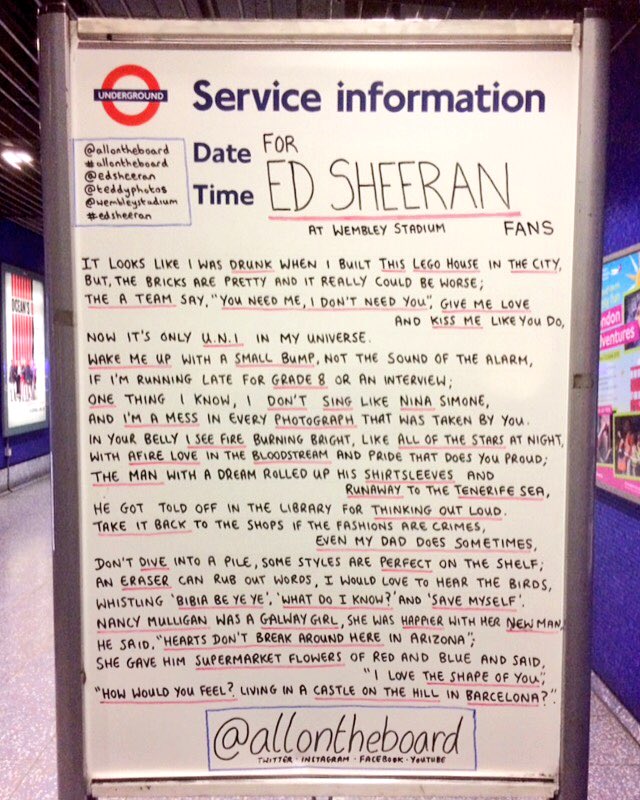 UNDERGROUND
Service information
@allontheboard
#allontheboard
@edsheeran
@teddyphotos
@wembleystadium
#edsheeran
Date
Time
FOR
ED SHEERAN
AT WEMBLEY STADIUM FANS
IT LOOKS LIKE I WAS DRUNK WHEN I BUILT THIS LEGO HOUSE IN THE CITY,
BUT, THE BRICKS ARE PRETTY AND IT REALLY COULD BE WORSE;
THE A TEAM SAY, "YOU NEED ME, I DON'T NEED YOU", GIVE ME LOVE
AND KISS ME LIKE YOU DO,
NOW IT'S ONLY U.N.I IN MY UNIVERSE.
WAKE ME UP WITH A SMALL BUMP, NOT THE SOUND OF THE ALARM,
IF I'M RUNNING LATE FOR GRADE 8 OR AN INTERVIEW;
ONE THING I KNOW, I DON'T SING LIKE NINA SIMONE,
AND I'M A MESS IN EVERY PHOTOGRAPH THAT WAS TAKEN BY YOU.
IN YOUR BELLY I SEE FIRE BURNING BRIGHT, LIKE ALL OF THE STARS AT NIGHT,
WITH AFIRE LOVE IN THE BLOODSTREAM AND PRIDE THAT DOES YOU PROUD;
THE MAN WITH A DREAM ROLLED UP HIS SHIRTSLEEVES AND
RUNAWAY TO THE TENERIFE SEA,
HE GOT TOLD OFF IN THE LIBRARY FOR THINKING OUT LOUD.
TAKE IT BACK TO THE SHOPS IF THE FASHIONS ARE CRIMES,
EVEN MY DAD DOES SOMETIMES,
DON'T DIVE INTO A PILE, SOME STYLES ARE PERFECT ON THE SHELF;
AN ERASER CAN RUB OUT WORDS, I WOULD LOVE TO HEAR THE BIRDS,
WHISTLING 'BIBIA BE YE YE', 'WHAT DO I KNOW?' AND 'SAVE MYSELF'.
NANCY MULLIGAN WAS A GALWAY GIRL, SHE WAS HAPPIER WITH HER NEW MAN,
HE SAID, "HEARTS DON'T BREAK AROUND HERE IN ARIZONA";
SHE GAVE HIM SUPERMARKET FLOWERS OF RED AND BLUE AND SAID,
"I LOVE THE SHAPE OF YOU",
"HOW WOULD YOU FEEL? LIVING IN A CASTLE ON THE HILL IN BARCELONA?"
@allontheboard
TWITTER · INSTAGRAM · FACEBOOK · YOUTUBE
OCEAN'S 8